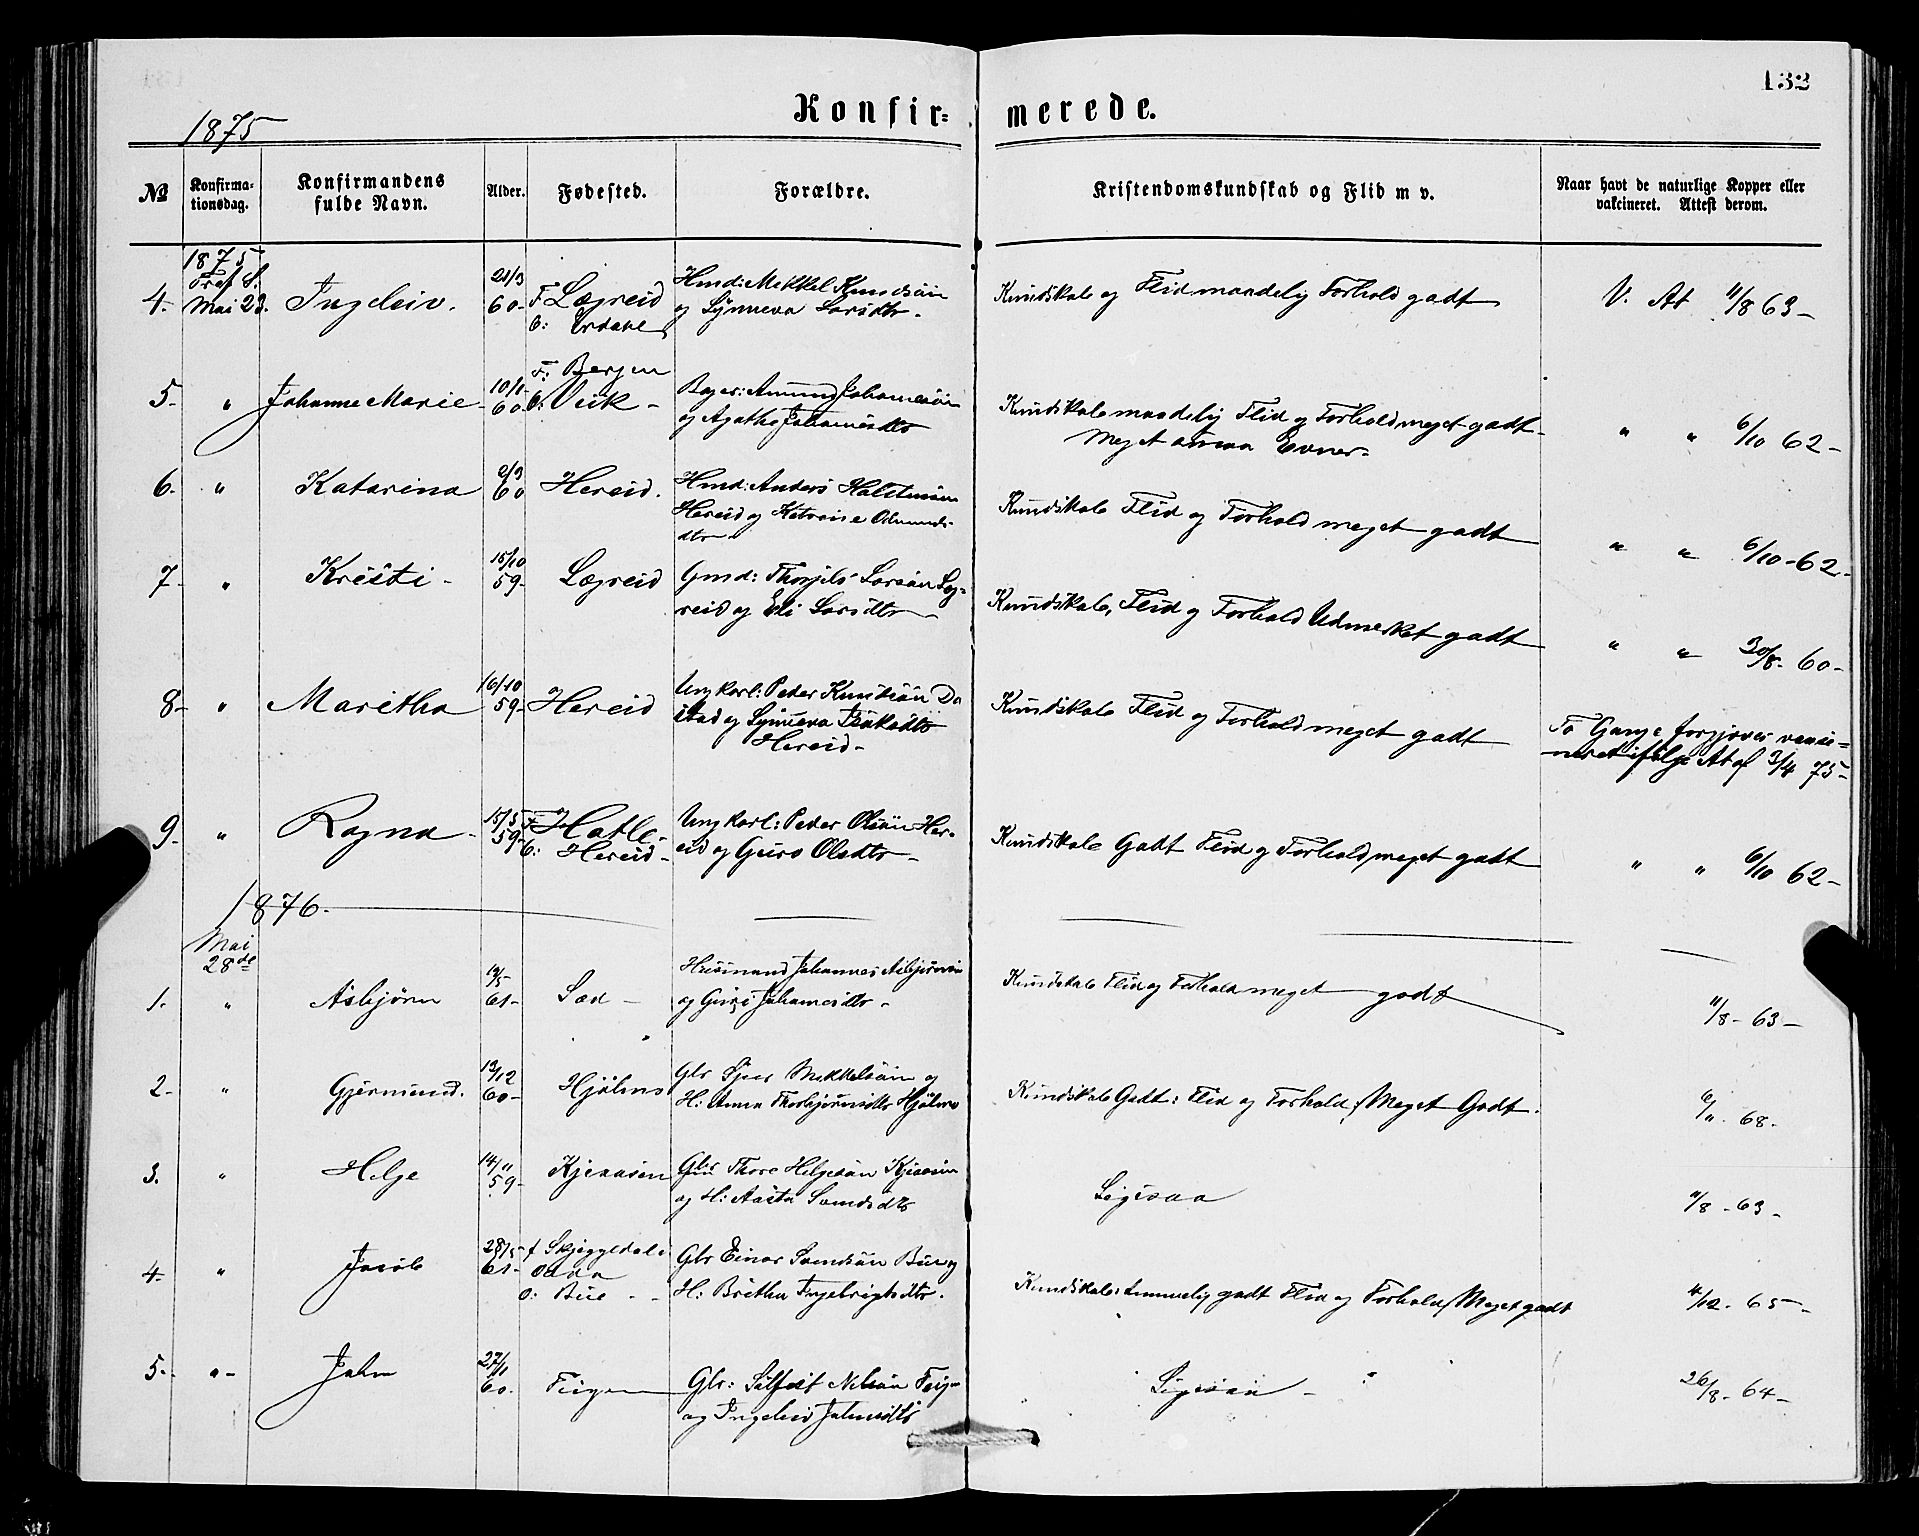 132
Konfirmerede.
1875
№
Konfirma-
tionsdag.
Konfirmandens
fulde Navn.
Alder.
Fødested.
Forældre.
Kristendomskundskab og Flid m v.
Naar havt de naturlige Kopper eller
vakcineret. Attest derom.
1875
4. Mai 23. Ingeleiv. 21/3 60- F Lægreid Hmd: Mikkel Knudsøn
O: Erdahl og Synneva Larsdtr.
Kundskab og Flid maadelig Forhold godt V. At 11/8 63-
5- " Johanne Marie 10/1 60 F: Bergen
O: Viik- Boges: Amund Johannesøn
og Agatha Johannesdtr
Kundskab maadelig Flid og Forhold meget godt-
Meget smaa Evner-
" " 6/10 62-
6. " Katarina 2/3 60 Hereid. Hmd: Anders Halstensøn
Hereid og Katrine Odmunds-
dtr
Kundskab Flid og Forhold meget godt " " 6/10-62-
7- " Kristi- 15/10 59- Lægreid Gmd: Thorgils Larsøn Læg-
reid og Eli Larsdtr
Kundskab, Flid og Forhold Udmerket godt " " 30/8- 60-
8- " Maritha 16/10 59- Hereid Ungkarl: Peder Knudsøn Da
stad og Synneva Isaksdtr
Hereid-
Kundskab Flid og Forhold meget godt
To Gange forgjæves vacci-
neret ifølge At af 3/4 75-
9. " Ragna- 15/5 59- F Hatle-
O: Hereid- Ungkarl: Peder Olsøn Her-
eid og Guro Olsdtr-
Kundskab Godt Flid og Forhold meget godt " " 6/10 62-
1876-
Mai
28de
1. " Asbjørn 19/5 61- Sæd- Huusmand Johannes Asbjørnsøn
og Guri Johannesdtr-
Kundskab Flid og Forhold meget godt 11/8- 63-
2- " Gjermund. 13/12 60- Hjølmo Gbr Sjur Mikkelsøn og
H: Anna Thorbjørnsdtr Hjølmo
Kundskab Godt: Flid og Forhold, Meget Godt. 6/11- 68-
3. " Helge 14/11 59- Kjeaasen Gbr Thore Helgesøn Kjeaasen
og H: Aasta Samsdtr
Ligesaa 11/8-63-
4- " Jacob 28/5- 61- f Skjeggedal i
Odda
O: Bue - - Gbr Einar Samsøn Bue og
H: Britha Ingebrigtsdtr.
Kundskab: temmelig godt Flid og Forhold, Meget godt 4/12-65-
5- "- John 27/11 60. Feigen Gbr: Silfæst Nilsøn Feig-
og Ingeleiv Johnsdtr
Ligesaa- " 26/8-64-